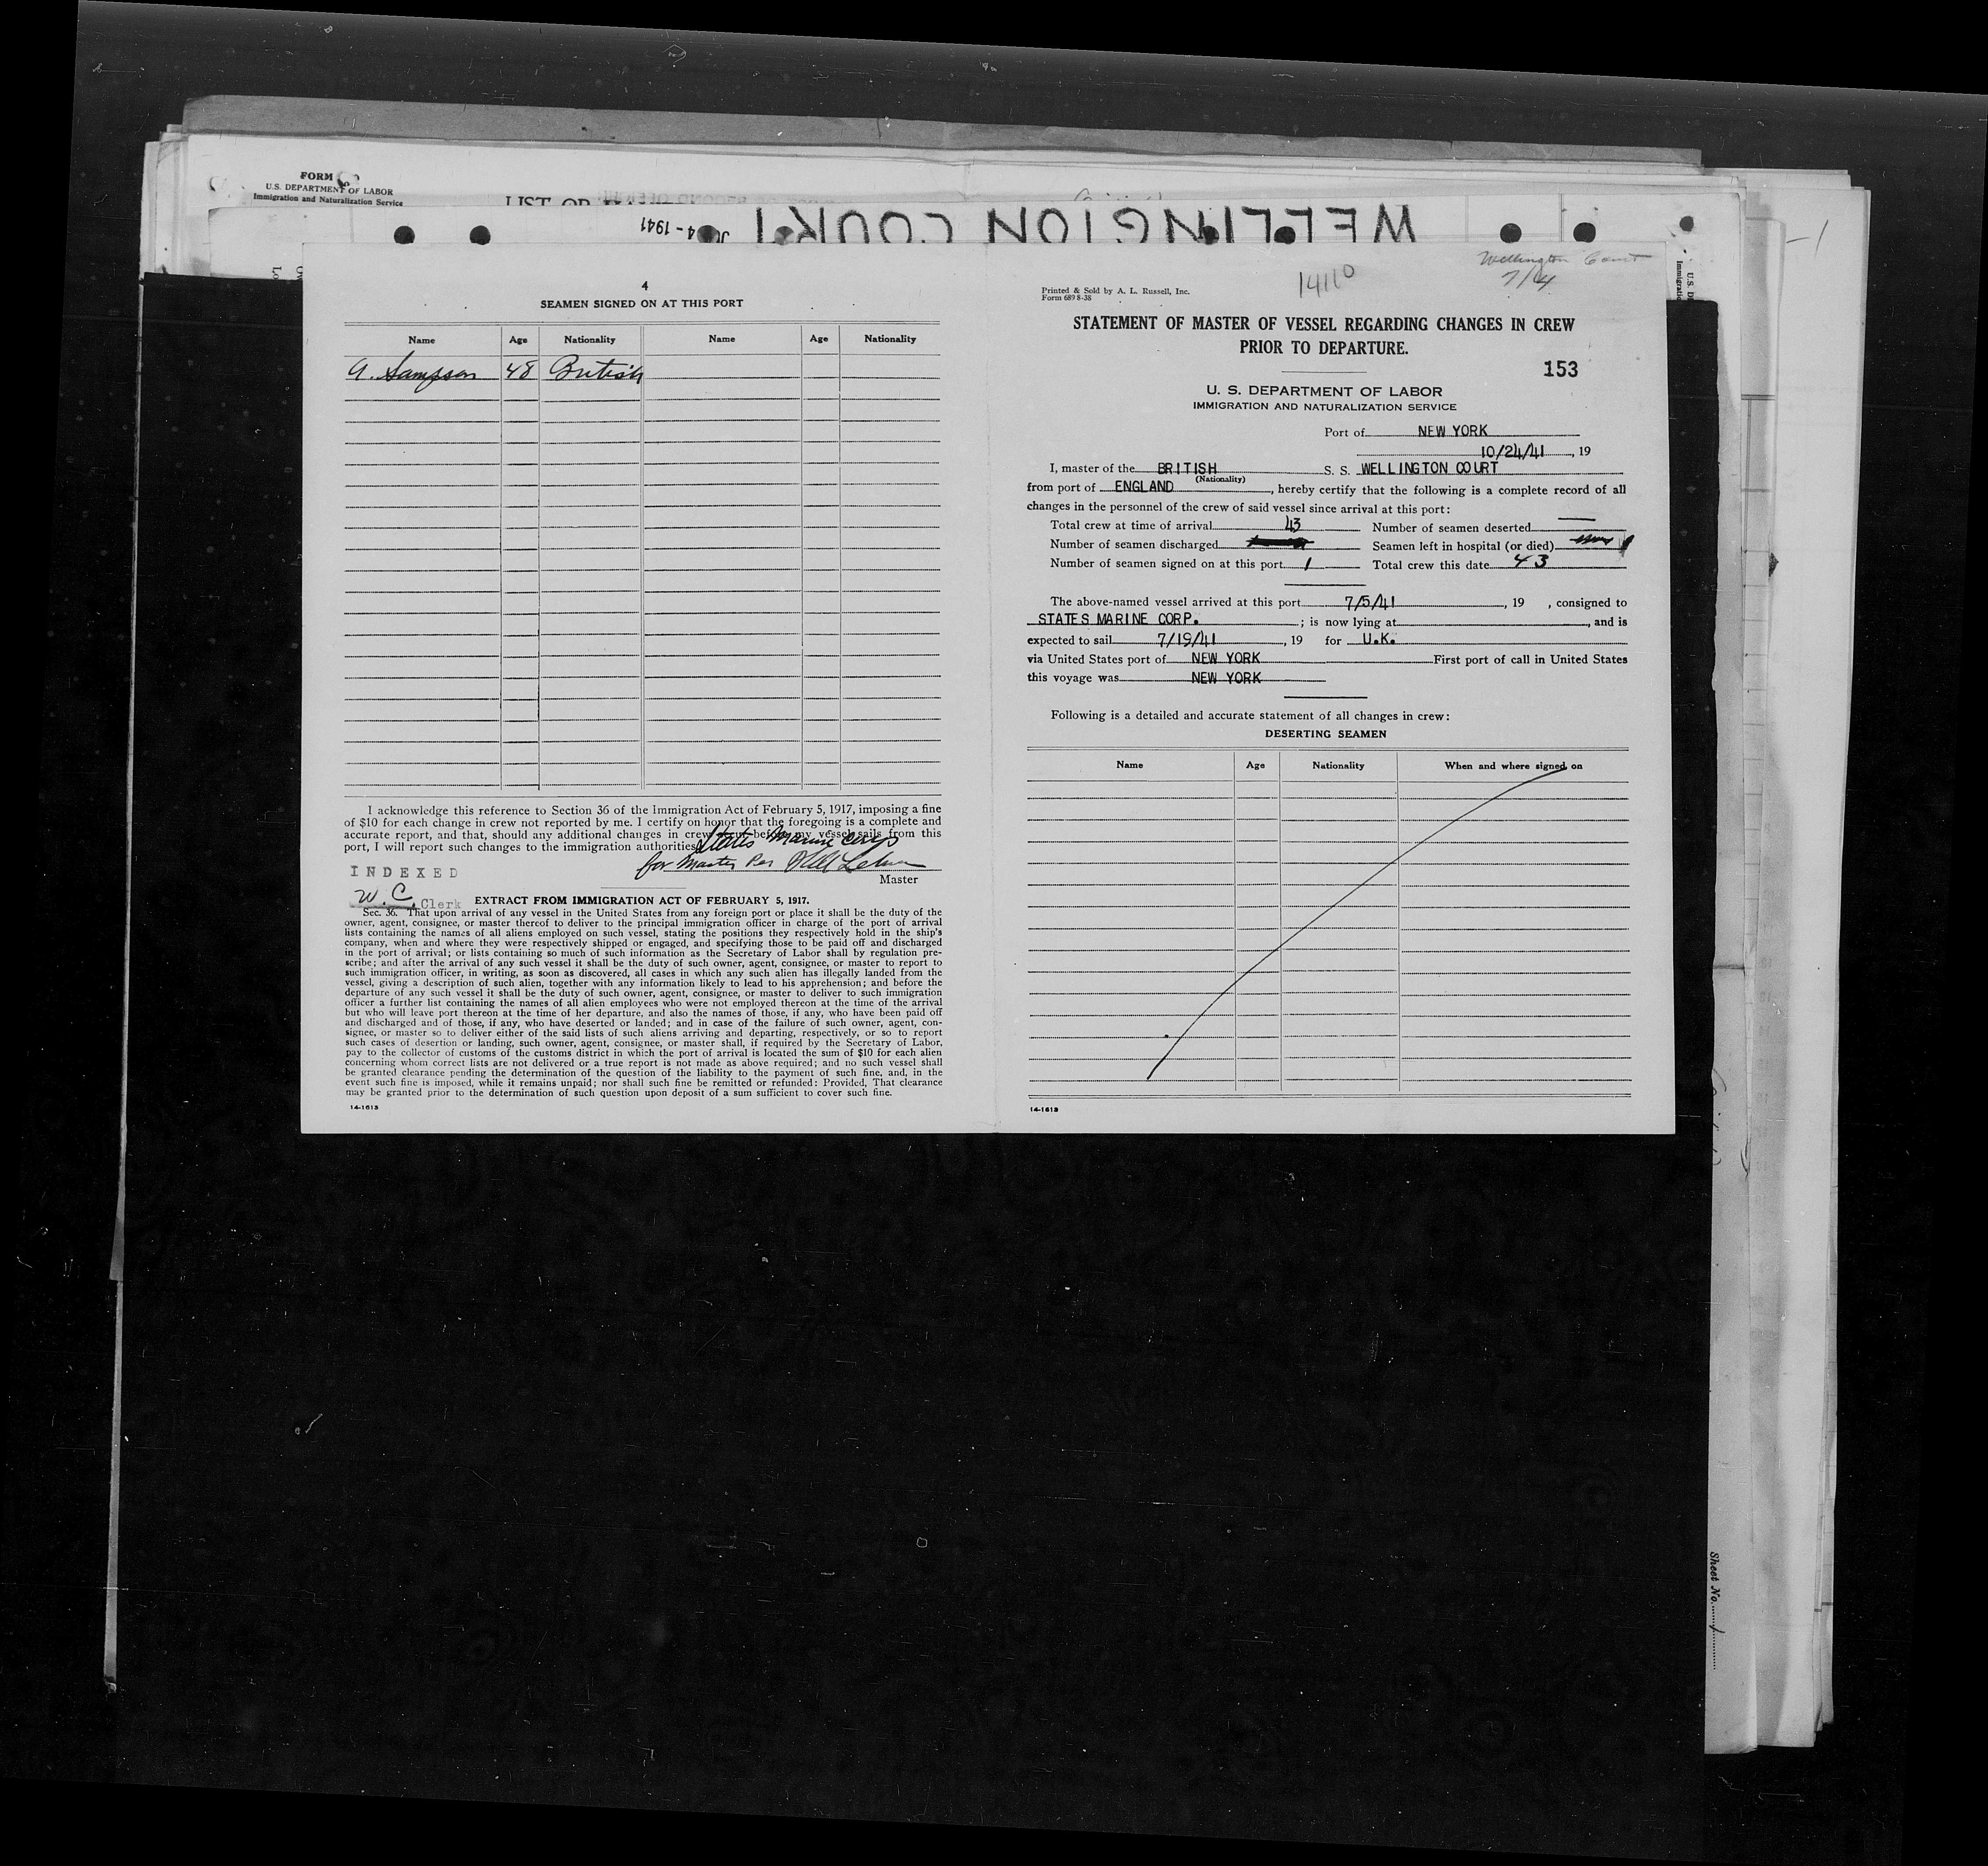 FORM
U. S. DEPARTMENT OF LABOR
Immigration and Naturalization Service
WELLINGTON COURT
4 - 1941
4
SEAMEN SIGNED ON AT THIS PORT
Name Age Nationality Name Age Nationality
A. Sampson 48 British
I acknowledge this reference to Section 36 of the Immigration Act of February 5, 1917, imposing a fine
of $10 for each change in crew not reported by me. I certify on honor that the foregoing is a complete and
accurate report, and that, should any additional changes in crew occur before my vessel sails from this
port, I will report such changes to the immigration authorities.
States Marine Corp
for Master Per
Master
INDEXED
W. C. Clerk
EXTRACT FROM IMMIGRATION ACT OF FEBRUARY 5, 1917.
Sec. 36. That upon arrival of any vessel in the United States from any foreign port or place it shall be the duty of the
owner, agent, consignee, or master thereof to deliver to the principal immigration officer in charge of the port of arrival
lists containing the names of all aliens employed on such vessel, stating the positions they respectively hold in the ship's
company, when and where they were respectively shipped or engaged, and specifying those to be paid off and discharged
in the port of arrival; or lists containing so much of such information as the Secretary of Labor shall by regulation pre-
scribe; and after the arrival of any such vessel it shall be the duty of such owner, agent, consignee, or master to report to
such immigration officer, in writing, as soon as discovered, all cases in which any such alien has illegally landed from the
vessel, giving a description of such alien, together with any information likely to lead to his apprehension; and before the
departure of any such vessel it shall be the duty of such owner, agent, consignee, or master to deliver to such immigration
officer a further list containing the names of all alien employees who were not employed thereon at the time of the arrival
but who will leave port thereon at the time of her departure, and also the names of those, if any, who have been paid off
and discharged and of those, if any, who have deserted or landed; and in case of the failure of such owner, agent, con-
signee, or master so to deliver either of the said lists of such aliens arriving and departing, respectively, or so to report
such cases of desertion or landing, such owner, agent, consignee, or master shall, if required by the Secretary of Labor,
pay to the collector of customs of the customs district in which the port of arrival is located the sum of $10 for each alien
concerning whom correct lists are not delivered or a true report is not made as above required; and no such vessel shall
be granted clearance pending the determination of the question of the liability to the payment of such fine, and, in the
event such fine is imposed, while it remains unpaid; nor shall such fine be remitted or refunded: Provided, That clearance
may be granted prior to the determination of such question upon deposit of a sum sufficient to cover such fine.
14-1613
Wellington Court
7/4
14110
Printed & Sold by A. L. Russell, Inc.
Form 689 8-38
STATEMENT OF MASTER OF VESSEL REGARDING CHANGES IN CREW
PRIOR TO DEPARTURE.
153
U. S. DEPARTMENT OF LABOR
IMMIGRATION AND NATURALIZATION SERVICE
Port of NEW YORK
10/24/41, 19
I, master of the BRITISH S. S. WELLINGTON COURT
(Nationality)
from port of ENGLAND, hereby certify that the following is a complete record of all
changes in the personnel of the crew of said vessel since arrival at this port:
Total crew at time of arrival 43 Number of seamen deserted
Number of seamen discharged Seamen left in hospital (or died) 1
Number of seamen signed on at this port 1 Total crew this date 43
The above-named vessel arrived at this port 7/5/41, 19 , consigned to
STATES MARINE CORP. ; is now lying at , and is
expected to sail 7/19/41, 19 for U.K.
via United States port of NEW YORK First port of call in United States
this voyage was NEW YORK
Following is a detailed and accurate statement of all changes in crew:
DESERTING SEAMEN
Name Age Nationality When and where signed on
14-1613
Sheet No.